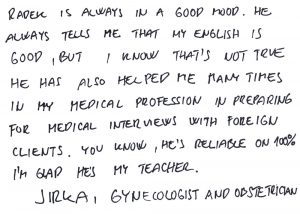 RADEK IS ALWAYS IN A GOOD MOOD. HE
ALWAYS TELLS ME THAT MY ENGLISH IS
GOOD, BUT I KNOW THAT'S NOT TRUE
HE HAS ALSO HELPED ME MANY TIMES
IN MY MEDICAL PROFESSION IN PREPARING
FOR MEDICAL INTERVIEWS WITH FOREIGN
CLIENTS. YOU KNOW, HE'S RELIABLE ON 100%
I'M GLAD HES MY TEACHER.
JIRKA, GYNECOLOGIST AND OBSTETRICIAN